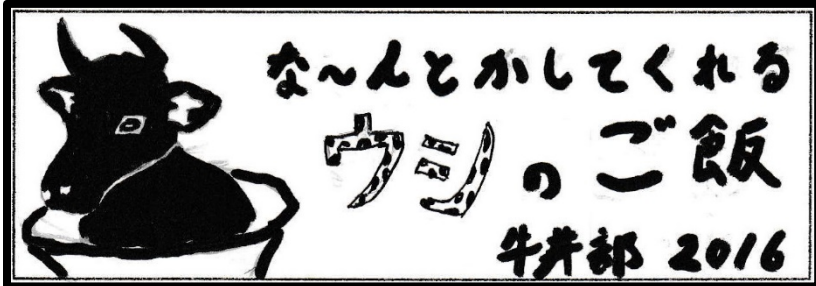 な～んとかしてくれる
ウシのご飯
牛丼部 2016